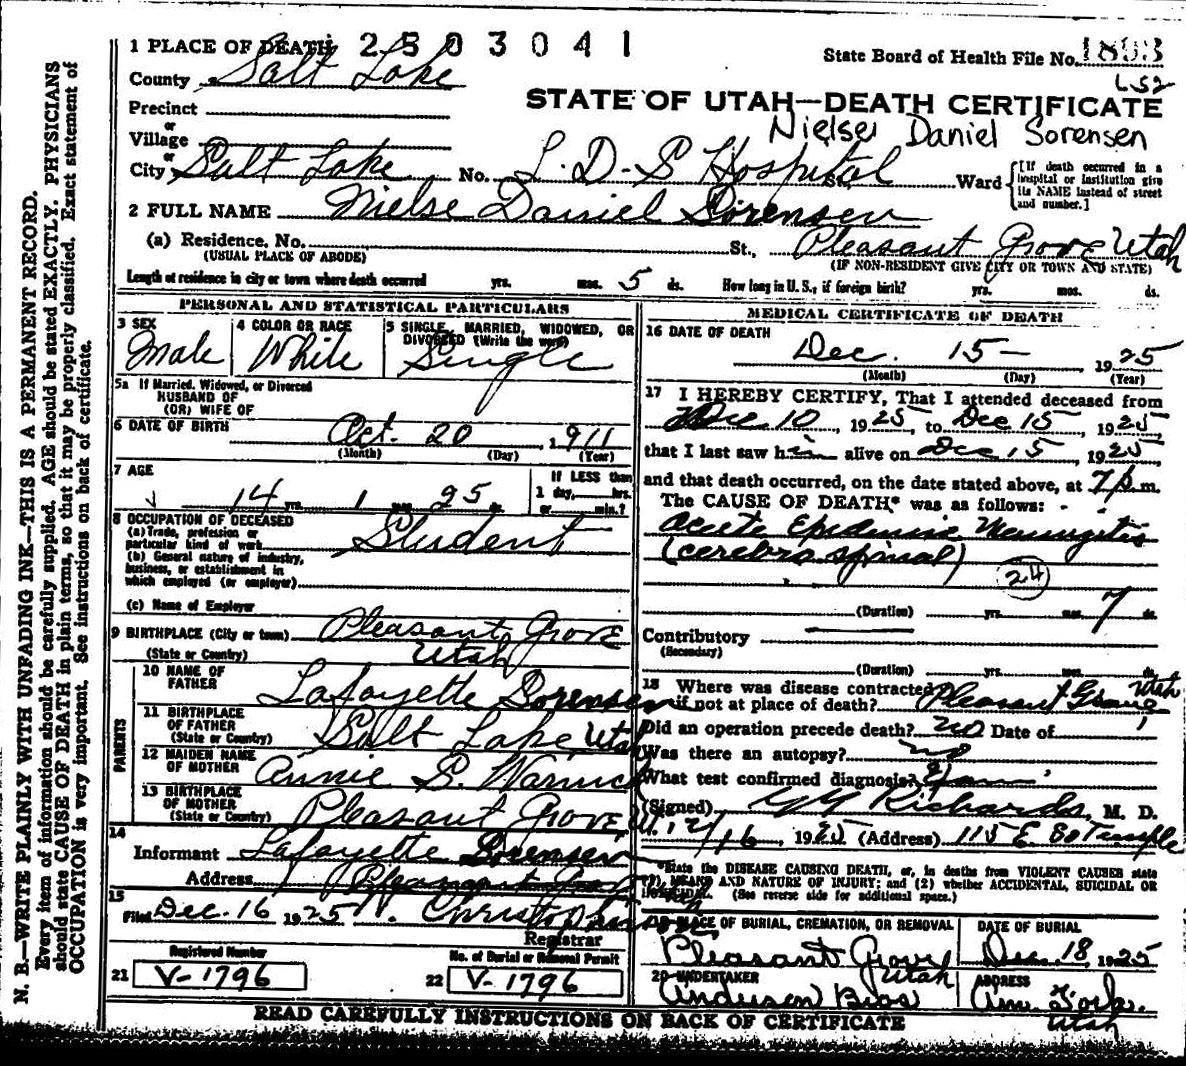 N. B.—WRITE PLAINLY WITH UNFADING INK—THIS IS A PERMANENT RECORD.
Every item of information should be carefully supplied. AGE should be stated EXACTLY. PHYSICIANS
should state CAUSE OF DEATH in plain terms, so that it may be properly classified. Exact statement of
OCCUPATION is very important. See instructions on back of certificate.
1 PLACE OF DEATH 2503041
State Board of Health File No. 1893
County Salt Lake
L52
STATE OF UTAH—DEATH CERTIFICATE
Precinct
Nielse Daniel Sorensen
or
Village
or
City Salt Lake No. L.D.S Hospital St. Ward
[If death occurred in a
hospital or institution give
its NAME instead of street
and number.]
2 FULL NAME Nielse Daniel Sorensen
(a) Residence, No. St., Pleasant Grove Utah
(USUAL PLACE OF ABODE)
(IF NON-RESIDENT GIVE CITY OR TOWN AND STATE)
Length of residence in city or town where death occurred yrs. mos. 5 ds. How long in U. S., if foreign birth? yrs. mos. ds.
PERSONAL AND STATISTICAL PARTICULARS
3 SEX
Male
4 COLOR OR RACE
White
5 SINGLE, MARRIED, WIDOWED, OR
DIVORCED (Write the word)
Single
5a If Married, Widowed, or Divorced
HUSBAND OF
(OR) WIFE OF
6 DATE OF BIRTH Oct. 20, 1911
(Month) (Day) (Year)
7 AGE
14 yrs. 1 mos. 25 ds.
If LESS than
1 day, hrs.
or min.?
8 OCCUPATION OF DECEASED
(a) Trade, profession or
particular kind of work Student
(b) General nature of industry,
business, or establishment in
which employed (or employer)
(c) Name of Employer
9 BIRTHPLACE (City or town) Pleasant Grove
(State or Country) Utah
PARENTS
10 NAME OF
FATHER Lafayette Sorensen
11 BIRTHPLACE
OF FATHER
(State or Country) Salt Lake, Utah
12 MAIDEN NAME
OF MOTHER Annie S. Warnick
13 BIRTHPLACE
OF MOTHER
(State or Country) Pleasant Grove Ut.
14
Informant Lafayette Sorensen
Address Pleasant Grove
15
Filed Dec. 16 1925
Registrar
Registered Number
21 V-1796
No. of Burial or Removal Permit
22 V-1796
MEDICAL CERTIFICATE OF DEATH
16 DATE OF DEATH
Dec. 15— 1925
(Month) (Day) (Year)
17 I HEREBY CERTIFY, That I attended deceased from
Dec 10, 1925, to Dec 15, 1925,
that I last saw him alive on Dec 15, 1925
and that death occurred, on the date stated above, at 7 p.m.
The CAUSE OF DEATH* was as follows:
Acute Epidemic Meningitis
(cerebro spinal)
24
(Duration) yrs. mos. 7 ds.
Contributory
(Secondary)
(Duration) yrs. mos. ds.
18 Where was disease contracted
if not at place of death? Pleasant Grove Utah
Did an operation precede death? no Date of
Was there an autopsy? no
What test confirmed diagnosis? Exam
(Signed) G G Richards, M. D.
12/16, 1925 (Address) 115 E. So Temple
*State the DISEASE CAUSING DEATH, or, in deaths from VIOLENT CAUSES state
(1) MEANS AND NATURE OF INJURY; and (2) whether ACCIDENTAL, SUICIDAL OR
HOMICIDAL. (See reverse side for additional space.)
19 PLACE OF BURIAL, CREMATION, OR REMOVAL
Pleasant Grove
Utah
DATE OF BURIAL
Dec. 18, 1925
20 UNDERTAKER
Andersen Bros
ADDRESS
Am. Fork.
Utah
READ CAREFULLY INSTRUCTIONS ON BACK OF CERTIFICATE